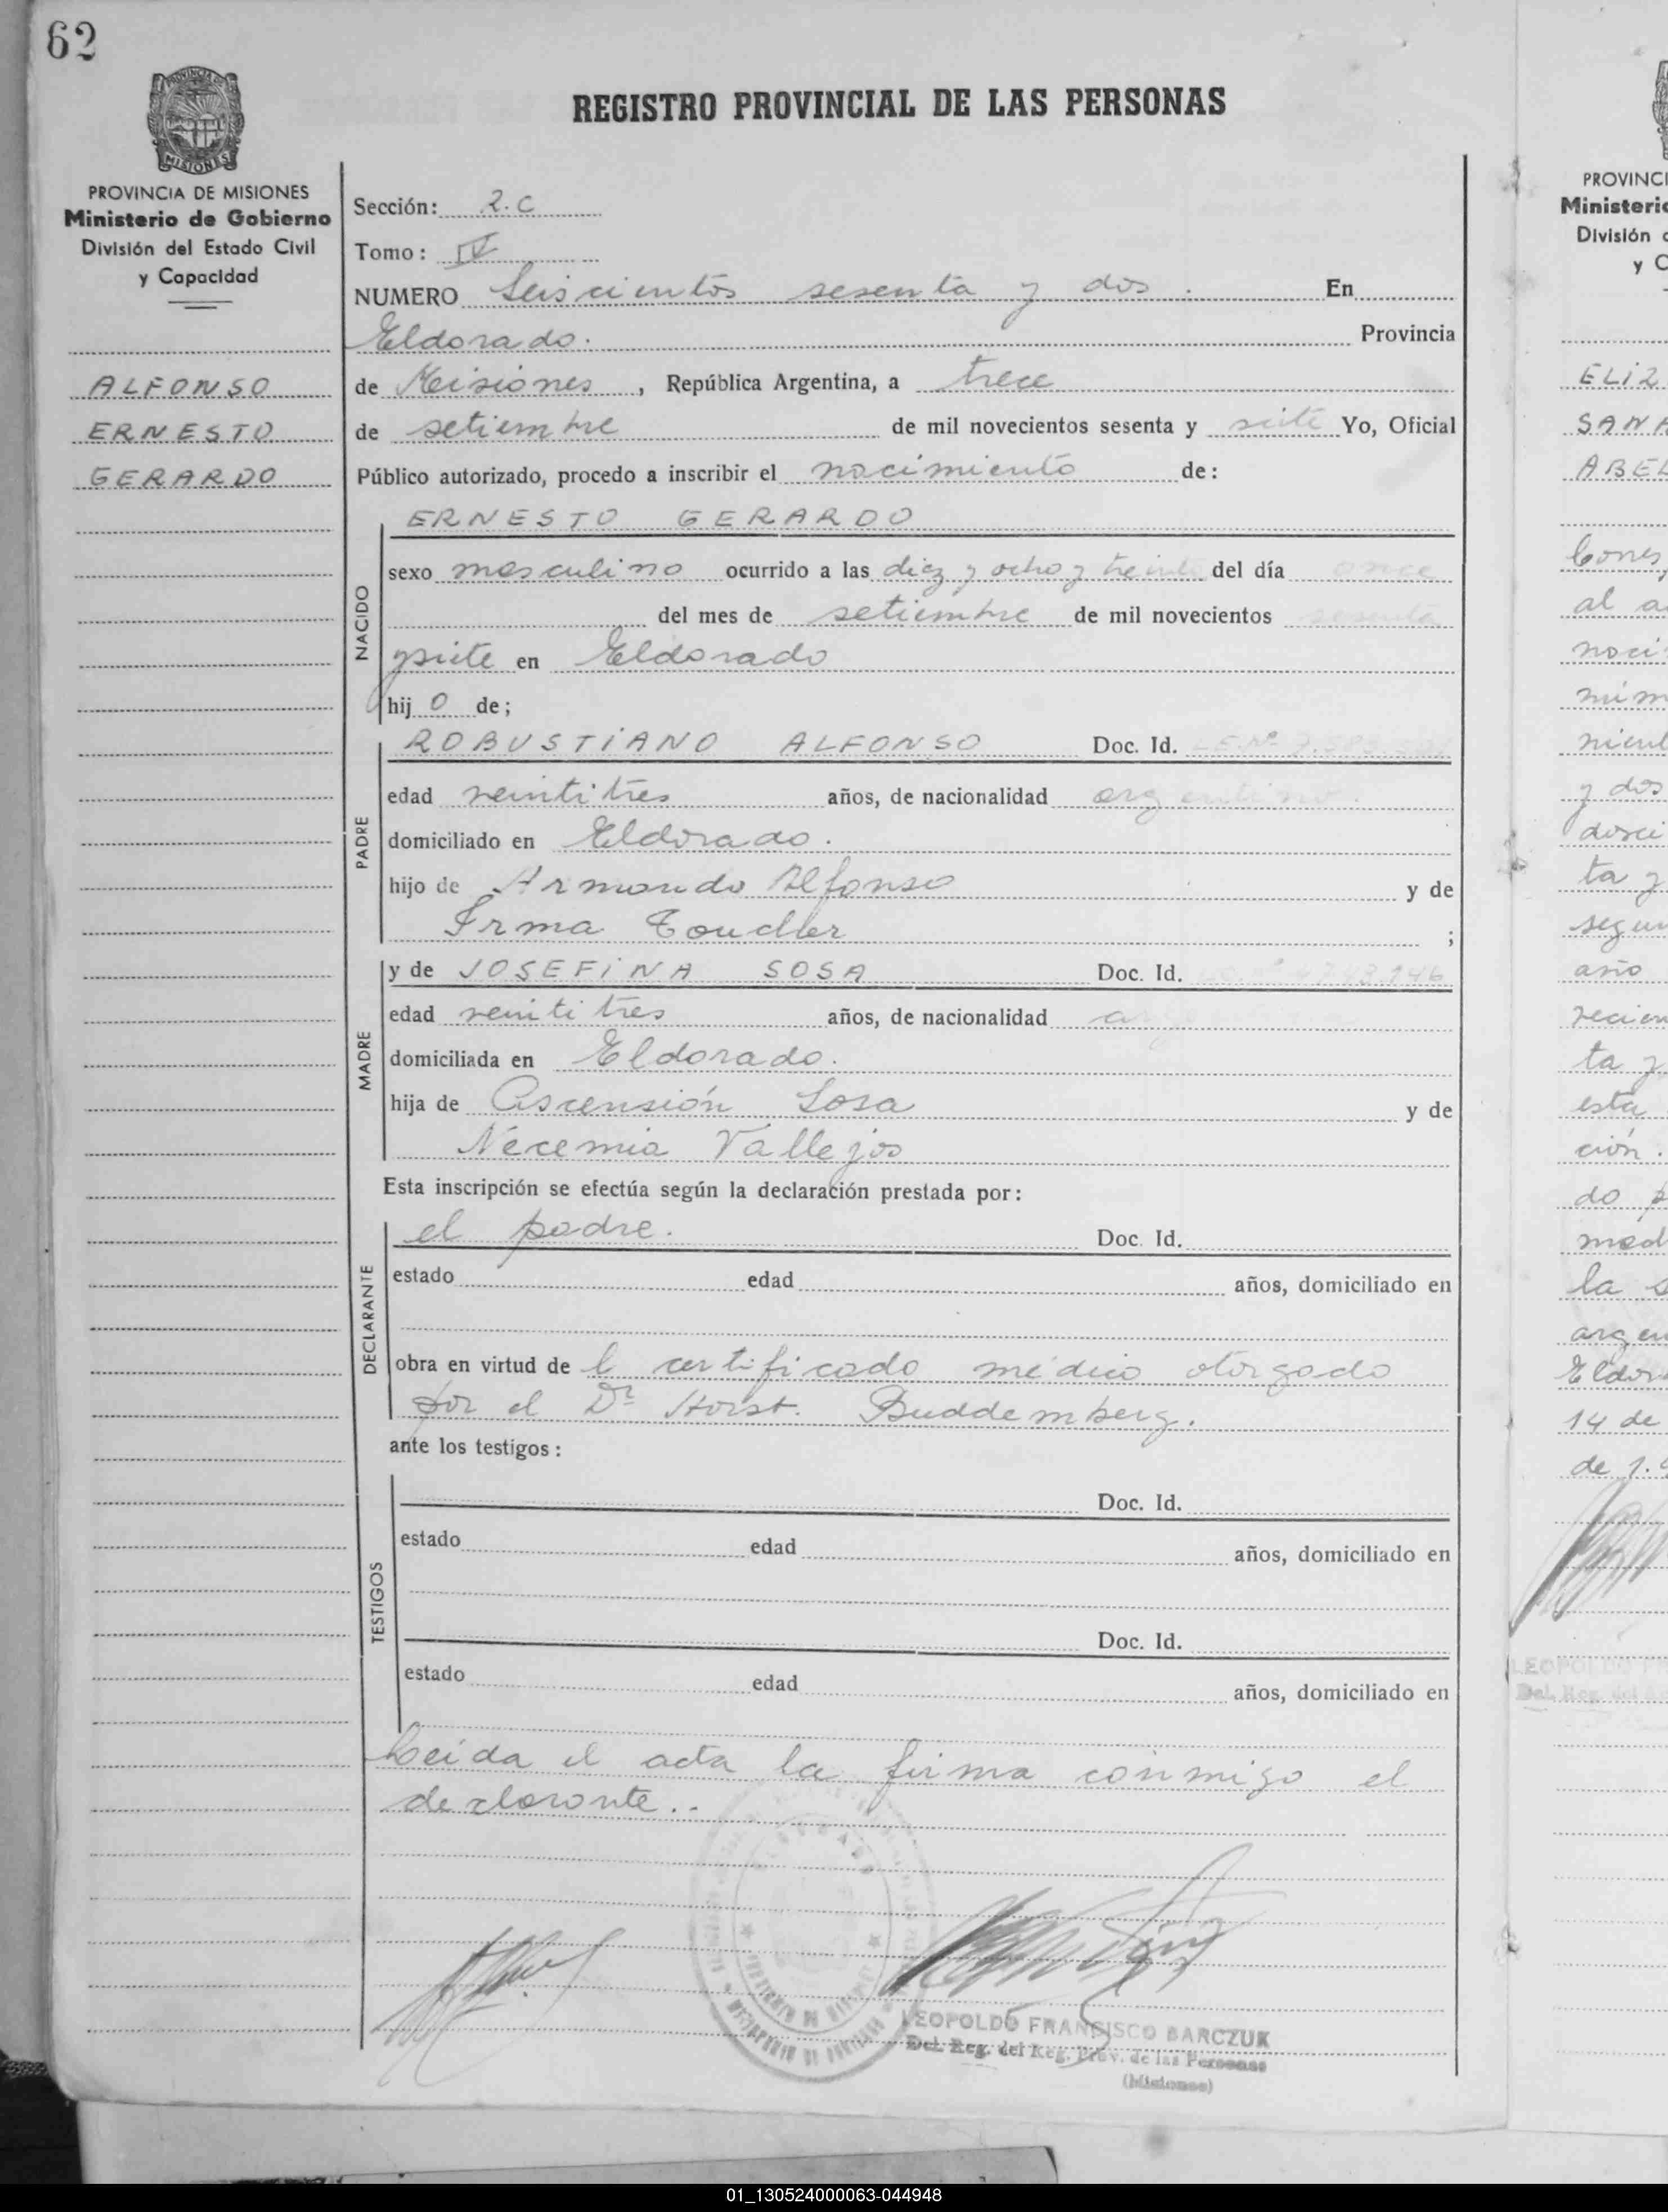 62
PROVINCIA DE MISIONES
Ministerio de Gobierno
División del Estado Civil
y Capacidad
ALFONSO
ERNESTO
GERARDO
REGISTRO PROVINCIAL DE LAS PERSONAS
Sección: 2.C
Tomo: IV
NUMERO Seiscientos sesenta y dos. En
Eldorado. Provincia
de Misiones, República Argentina, a trece
de setiembre de mil novecientos sesenta y siete Yo, Oficial
Público autorizado, procedo a inscribir el nacimiento de:
NACIDO
ERNESTO GERARDO
sexo masculino ocurrido a las diez y ocho y treinta del día once
del mes de setiembre de mil novecientos sesenta
y siete en Eldorado
hijo de;
PADRE
ROBUSTIANO ALFONSO Doc. Id. L.E.Nº
edad veintitres años, de nacionalidad argentino.
domiciliado en Eldorado.
hijo de Armando Alfonso y de
Irma ;
MADRE
y de JOSEFINA SOSA Doc. Id.
edad veintitres años, de nacionalidad
domiciliada en Eldorado.
hija de Ascensión Sosa y de
Necemia Vallejos
Esta inscripción se efectúa según la declaración prestada por:
DECLARANTE
el padre. Doc. Id.
estado edad años, domiciliado en
obra en virtud del certificado médico otorgado
por el Dr Horst. Buddemberg.
ante los testigos:
TESTIGOS
Doc. Id.
estado edad años, domiciliado en
Doc. Id.
estado edad años, domiciliado en
Leída el acta la firma conmigo el
declarante..
LEOPOLDO FRANCISCO BARCZUK
Del. Reg. del Reg. Prov. de las Personas
(Misiones)
PROVINCI
Ministerio
División
y C
ELIZ
SAN
ABEL
al a
y dos
ta y
año
ta y
esta
ción.
do
la
14 de
de 1.9
01_130524000063-044948